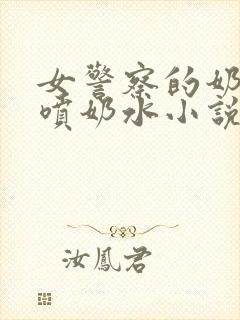 女警察的奶
喷奶水小说
汝鳳君